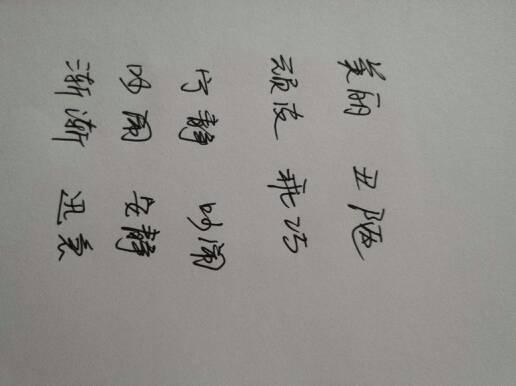 美丽 丑陋
顽皮 乖巧
宁静 吵闹
吵闹 安静
渐渐 迅急